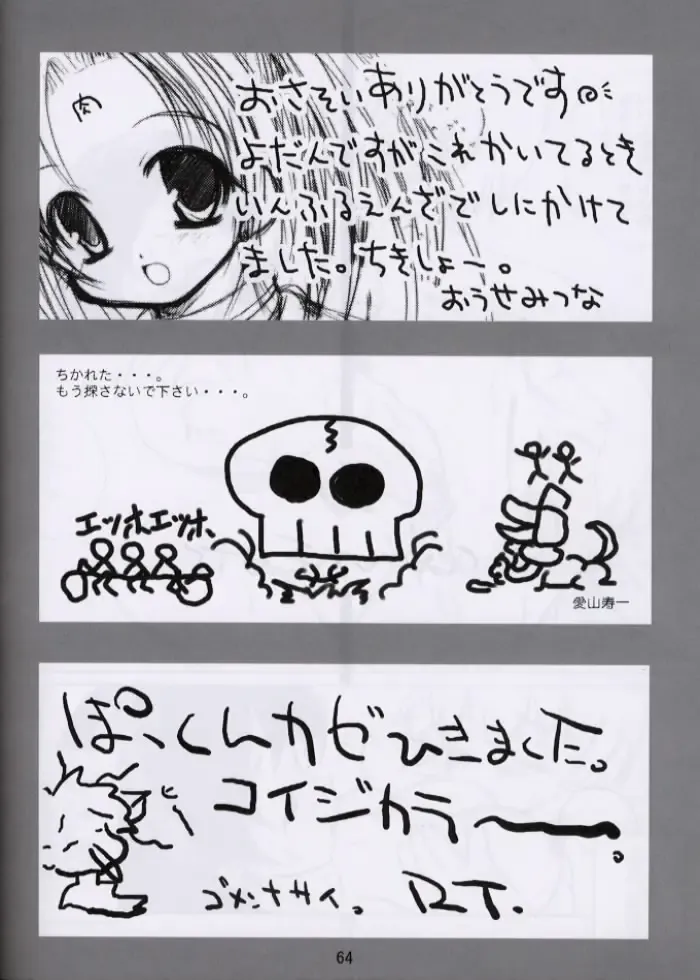 肉
おさそいありがとうです
よだんですがこれかいてるとき
いんふるえんざでしにかけて
ました。ちきしょー。
おうせみつな
ちかれた・・・。
もう探さないで下さい・・・。
エッホエッホ、
愛山寿一
ぽっくんカゼひきました。
コイジカラー。
ゴメンナサイ。 RT.
64